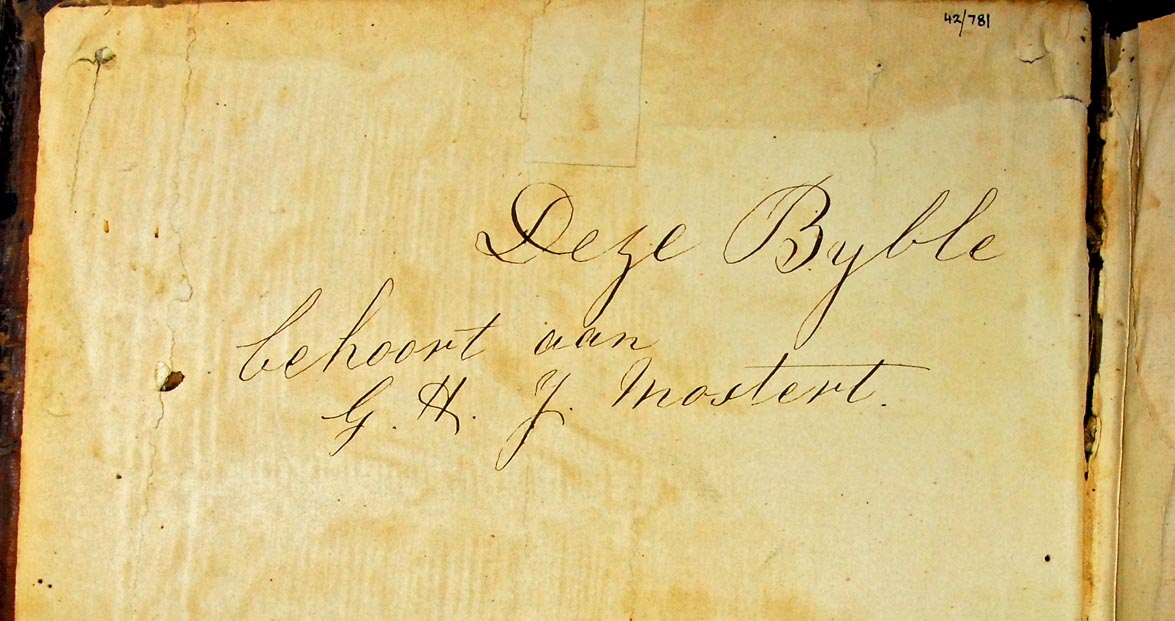 42/781
Deze Byble
behoort aan
G. H. J. Mostert.